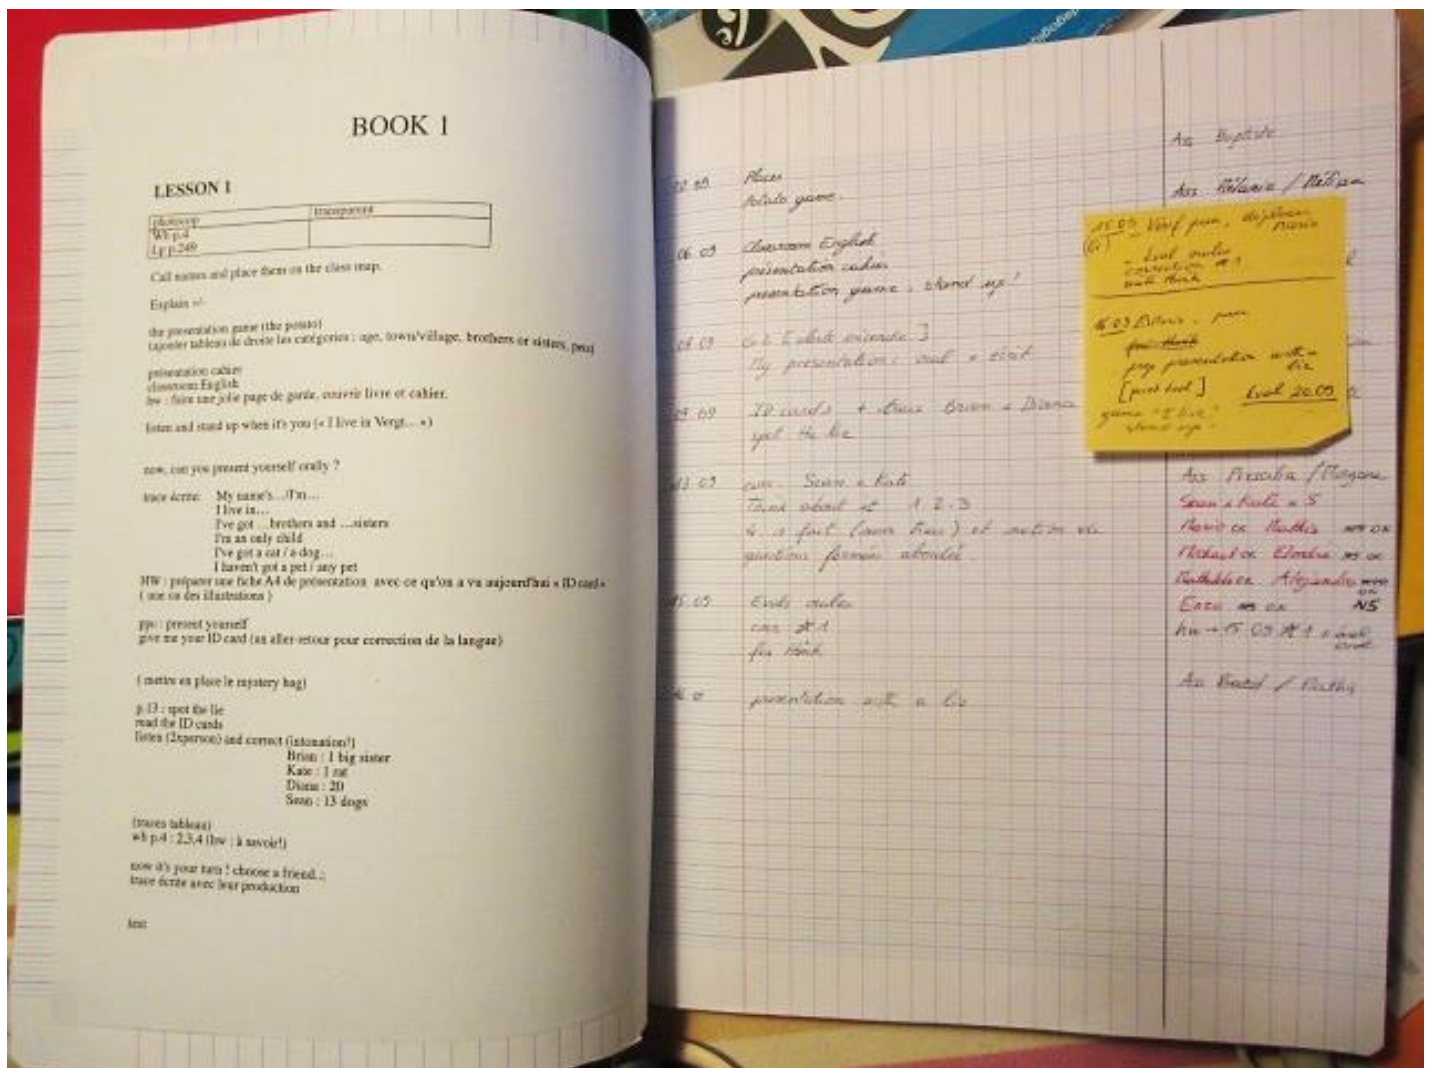 BOOK 1
LESSON 1
photocop transparent
Wb p.4
Lp p.249
Call names and place them on the class map.
Explain +/-
the presentation game (the potato)
(ajouter tableau de droite les catégories : age, town/village, brothers or sisters, pets)
présentation cahier
classroom English
hw : faire une jolie page de garde, couvrir livre et cahier.
listen and stand up when it's you (« I live in Vergt... »)
now, can you present yourself orally ?
trace écrite: My name's.../I'm...
I live in...
I've got ...brothers and ...sisters
I'm an only child
I've got a cat / a dog...
I haven't got a pet / any pet
HW : préparer une fiche A4 de présentation avec ce qu'on a vu aujourd'hui « ID card»
( une ou des illustrations )
ppc : present yourself
give me your ID card (un aller-retour pour correction de la langue)
( mettre en place le mystery bag)
p.13 : spot the lie
read the ID cards
listen (2xperson) and correct (intonation!)
Brian : 1 big sister
Kate : 1 rat
Diana : 20
Sean : 13 dogs
(traces tableau)
wb p.4 : 2,3,4 (hw : à savoir!)
now it's your turn ! choose a friend..:
trace écrite avec leur production
Places
Potato game.
06 09 Classroom English
présentation cahier
presentation game, stand up!
08 09
My presentation: oral +
09 09 ID cards + trace Brian + Diana
spot the lie
13 09 corr. Sean + Kate
Think about it 1 2 3
15 09 Evals orales
corr
fin think
presentation with a lie
Ass Baptiste
Ass Mélanie / Mélissa
15 09 Verif
- Eval orales
correction
16 09
prep presentation with a
lie
Eval 20.09
game "I live"
stand up
Ass Priscilia / Morgane
Sean + Kate = 5
Mario ok Mathis
Mickael ok
Alejandro
Enzo ok NS
hw → 15 09